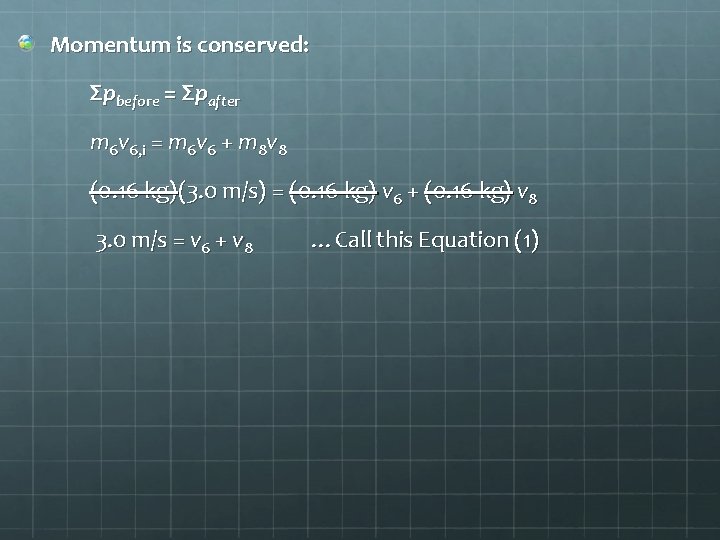 Momentum is conserved:
Σp before = Σp after
m6v6,i = m6v6 + m8v8
(0.16 kg)(3.0 m/s) = (0.16 kg) v6 + (0.16 kg) v8
3.0 m/s = v6 + v8 …Call this Equation (1)